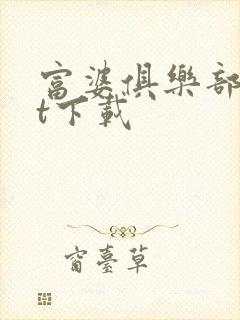 富婆俱樂部
t下載
窗臺草